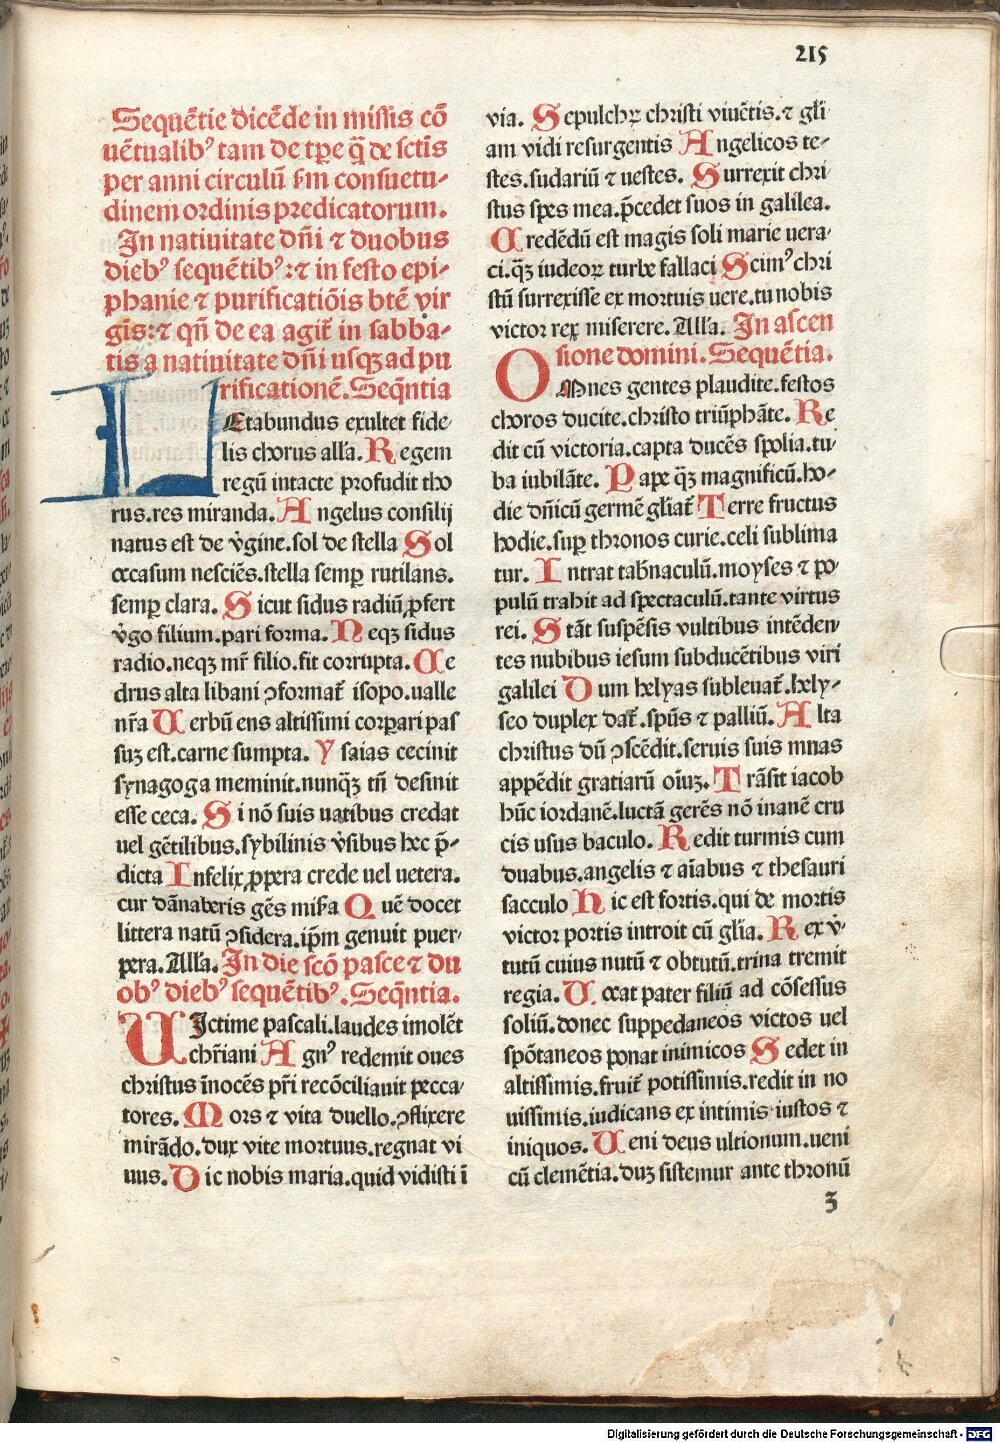 215
Sequẽtie dicẽde in missis cõ
uẽtualibꝰ tam de tp̱e q̃ de sctĩs
per anni circulũ ẜm consuetu-
dinem ordinis predicatorum.
In natiuitate dñi ⁊ duobus
diebꝰ sequẽtibꝰ:⁊ in festo epi-
phanie ⁊ purificatiõis btẽ vir
gis̃:⁊ qñ de ea agit̃ in sabba-
tis a natiuitate dñi usqꝫ ad pu
rificationẽ. Seq̃ntia
LEtabundus exultet fide-
lis chorus all'a. Regem
regũ intacte profudit tho
rus.res miranda. Angelus consilij
natus est de v̓gine.sol de stella Sol
occasum nesciẽs.stella semꝑ rutilans.
semꝑ clara. Sicut sidus radiũ ꝓfert
v̓go filium.pari forma. Neqꝫ sidus
radio.neqꝫ mr̃ filio.fit corrupta. Ce
drus alta libani ꝯformat̃ isopo.ualle
nr̃a Uerbũ ens altissimi corꝑari pas
suꝫ est.carne sumpta. Ysaias cecinit
synagoga meminit.nunq̃ꝫ tñ desinit
esse ceca. Si nõ suis uatibus credat
uel gẽtilibus.sybilinis v̓sibus hec p̃-
dicta Infelix ꝓpera crede uel uetera.
cur dãnaberis gẽs mis̃a Quẽ docet
littera natũ ꝯsidera.ip̃m genuit puer-
pera. All'a. In die scõ pasce ⁊ du
obꝰ diebꝰ sequẽtibꝰ. Seq̃ntia.
UIctime pascali.laudes imolẽt
chr̃iani Agnꝰ redemit oues
christus ĩnocẽs pr̃i recõciliauit pecca-
tores. Mors ⁊ vita duello.ꝯflixere
mirãdo.dux vite mortuus.regnat vi
uus. Dic nobis maria.quid vidisti ĩ
via. Sepulchꝝ christi viuẽtis.⁊ gl'i
am vidi resurgentis Angelicos te-
stes.sudariũ ⁊ uestes. Surrexit chri
stus spes mea.p̃cedet suos in galilea.
Credẽdũ est magis soli marie uera-
ci.q̃ꝫ iudeoꝝ turbe fallaci Scimꝰ chri
stũ surrexisse ex mortuis uere.tu nobis
victor rex miserere. All'a. In ascen
sione domini. Sequẽtia.
OMnes gentes plaudite.festos
choros ducite.christo triũphãte. Re
dit cũ victoria.capta ducẽs spolia.tu-
ba iubilãte. Pape q̃ꝫ magnificũ.ho-
die dñicũ germẽ gl'iat̃ Terre fructus
hodie.suꝑ thronos curie.celi sublima
tur. Intrat tab̃naculũ.moyses ⁊ po-
pulũ trahit ad spectaculũ.tante virtus
rei. Stãt suspẽsis vultibus intẽden-
tes nubibus iesum subducẽtibus viri
galilei Dum helyas subleuat̃.hely-
seo duplex dat̃.spũs ⁊ palliũ. Alta
christus dũ ꝯscẽdit.seruis suis mnas
appẽdit gratiarũ oĩuꝫ. Trãsit iacob
hũc iordanẽ.luctã gerẽs nõ inanẽ cru
cis usus baculo. Redit turmis cum
duabus.angelis ⁊ aĩabus ⁊ thesauri
sacculo Hic est fortis.qui de mortis
victor portis introit cũ gl'ia. Rex v̓-
tutũ cuius nutũ ⁊ obtutũ.trina tremit
regia. Uocat pater filiũ ad cõsessus
soliũ.donec suppedaneos victos uel
spõtaneos ponat inimicos Sedet in
altissimis.fruit̃ potissimis.redit in no
uissimis.iudicans ex intimis iustos ⁊
iniquos. Ueni deus ultionum.ueni
cũ clemẽtia.duꝫ sistemur ante thronũ
ʒ
Digitalisierung gefördert durch die Deutsche Forschungsgemeinschaft - DFG